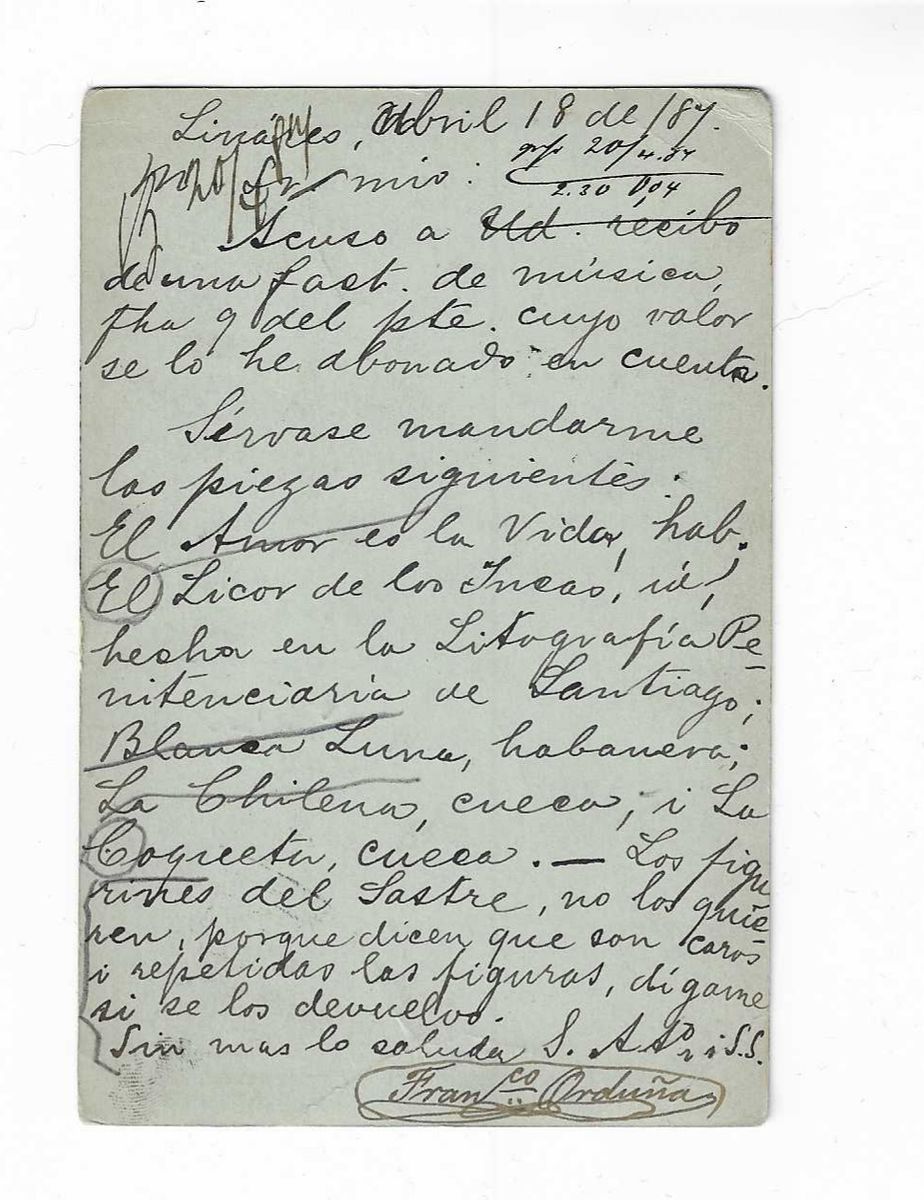 Lináres, Abril 18 de /87.
Sr mio:
20/4.87
2.30 904
Acuso a Ud. recibo
de una fact. de música,
fha 9 del pte. cuyo valor
se lo he abonado en cuenta.
Sírvase mandarme
las piezas siguientes.
El Amor es la Vida, hab.
El Licor de los Incas, id,
hecha en la Litografía Pe-
nitenciaria de Santiago;
Blanca Luna, habanera;
La Chilena, cueca; i La
Coqueta, cueca. — Los figu
rines del Sastre, no los quie-
ren, porque dicen que son caros
i repetidas las figuras, dígame
si se los devuelvo.
Sin mas lo saluda S. A Aº i S.S.
Franco Orduña